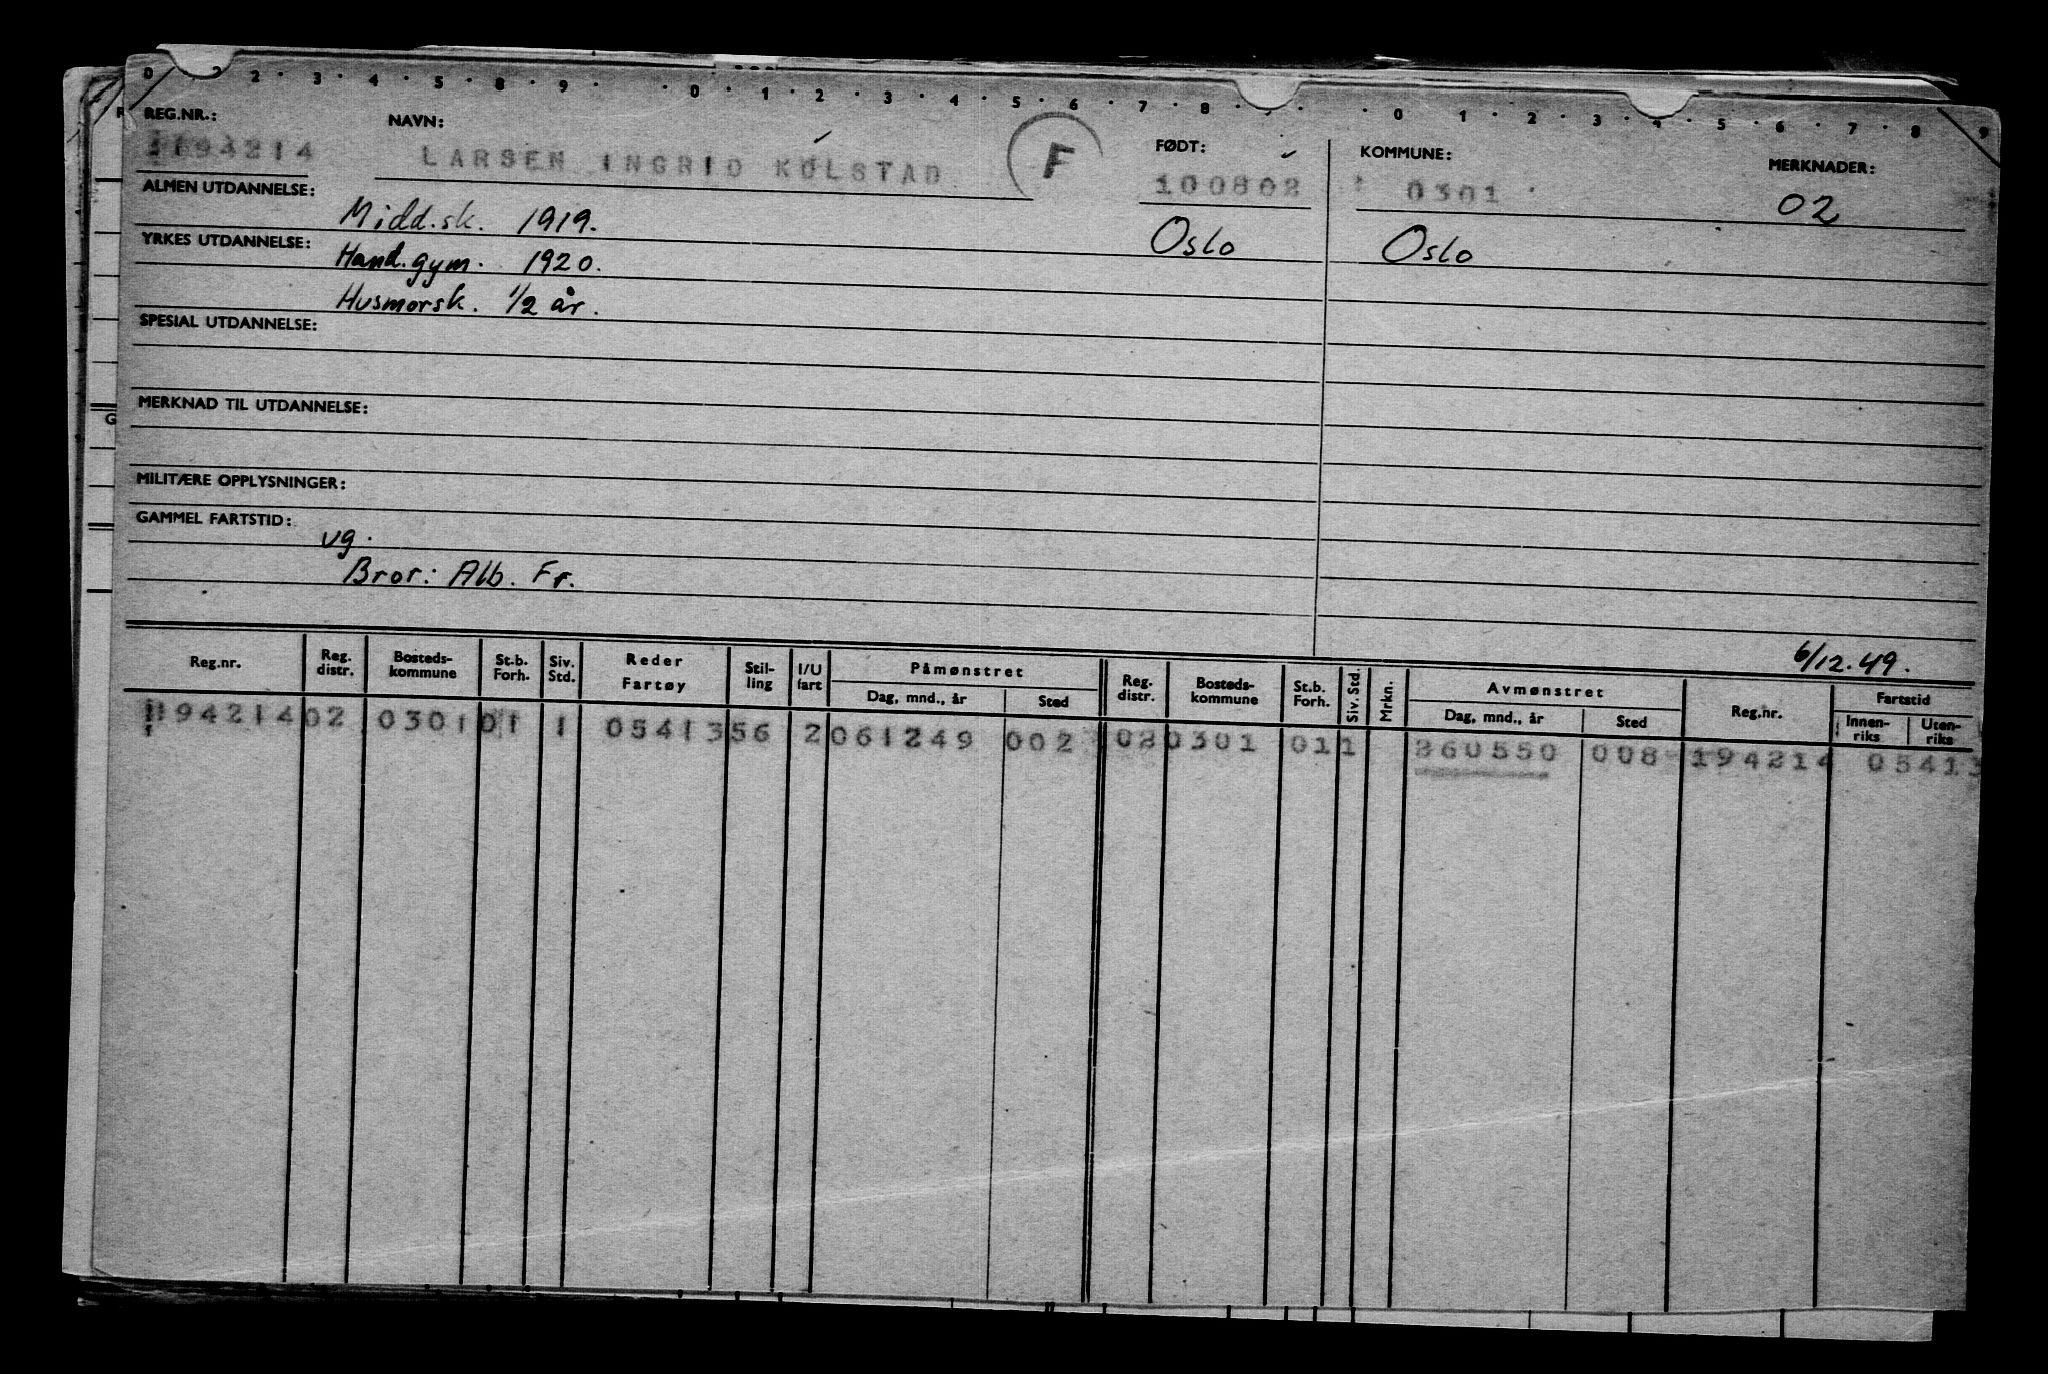 0 2 · 3 · 4 · 5 · 8 · 9 · · 0 · 1 · 2 · 3 · 4 · 5 · 6 · 7 · 8 · · 0 1 · 2 · 3 · 4 · 5 · 6 · 7 · 8 · 9
REG.NR.: NAVN: FØDT: KOMMUNE: MERKNADER:
194214 LARSEN INGRID KOLSTAD F 100802 0301 02
ALMEN UTDANNELSE: Midd.sk. 1919. Oslo Oslo
YRKES UTDANNELSE: Hand.gym. 1920.
Husmorsk. 1/2 år.
SPESIAL UTDANNELSE:
MERKNAD TIL UTDANNELSE:
MILITÆRE OPPLYSNINGER:
GAMMEL FARTSTID:
vg.
Bror: Alb. Fr.
6/12.49.
Reg.nr. Reg. distr. Bosteds-kommune St.b. Forh. Siv. Std. Reder Fartøy Stil-ling I/U fart Påmønstret Dag, mnd., år Sted Reg. distr. Bosteds-kommune St.b. Forh. Siv. Std. Mrkn. Avmønstret Dag, mnd., år Sted Reg.nr. Fartstid Innen-riks Uten-riks
194214 02 0301 01 1 05413 56 2 061249 002 02 0301 01 1 260550 008 194214 05413